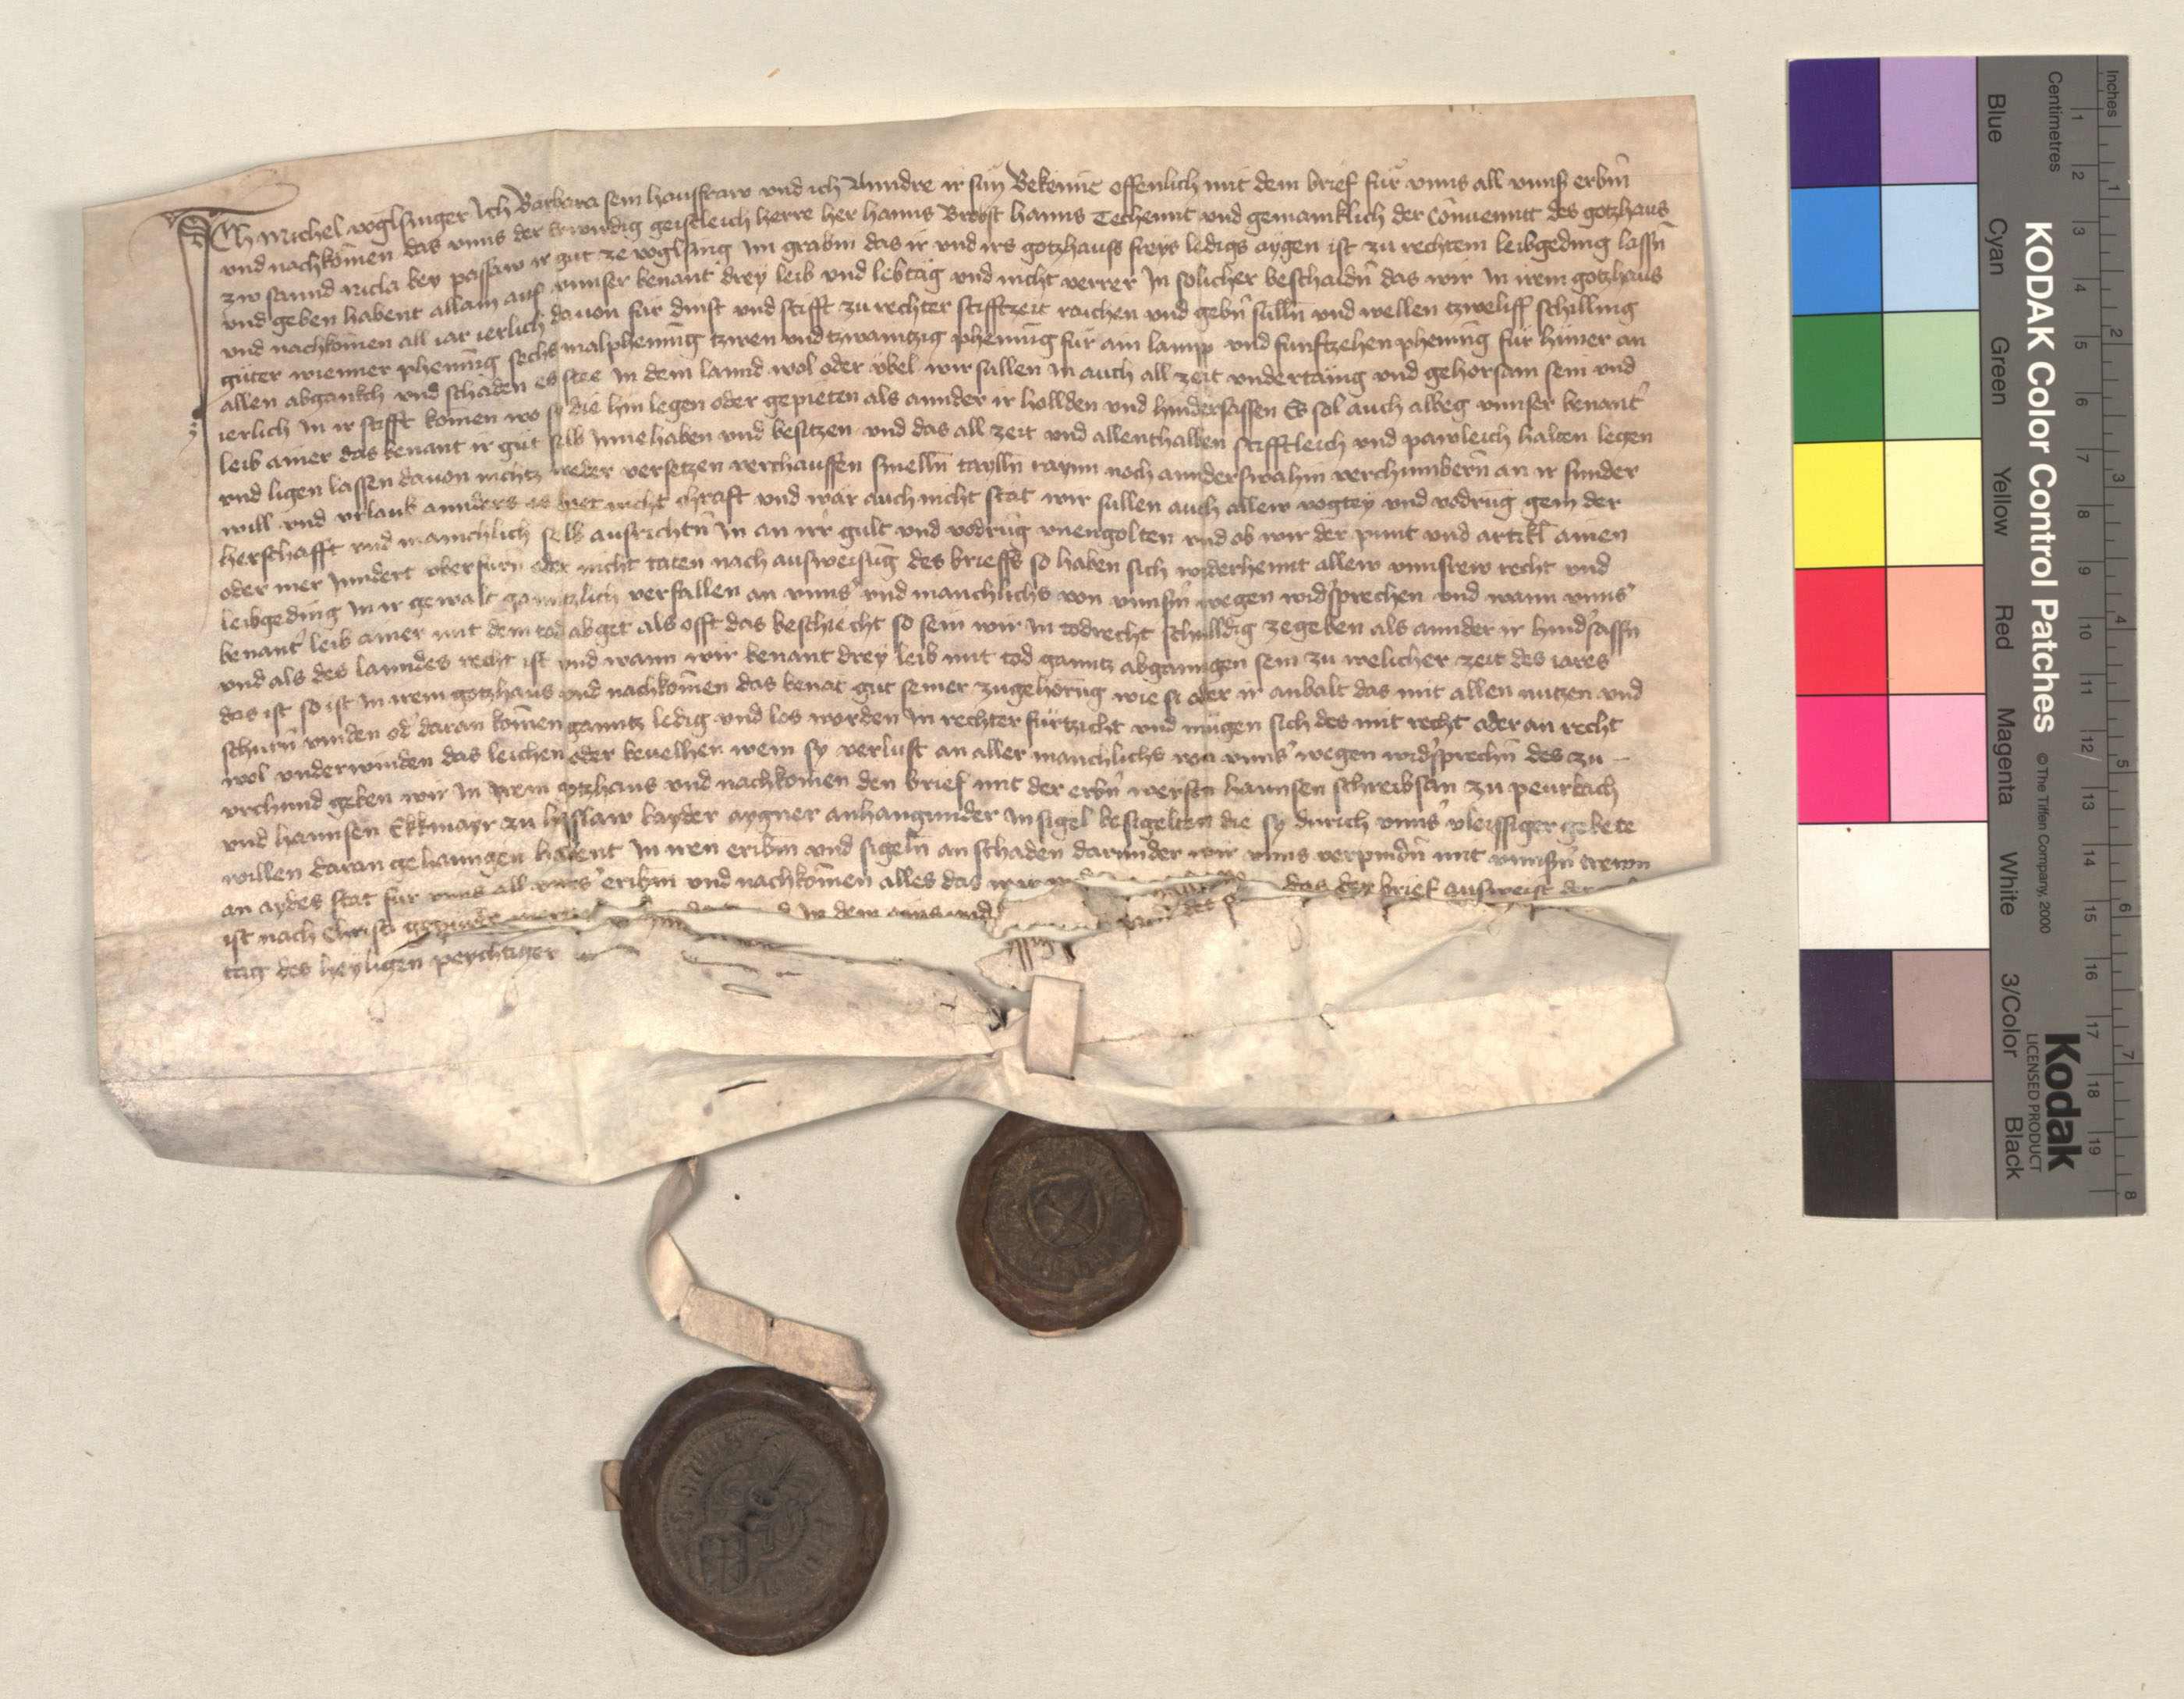 Ich Michel voglsinger Ich Barbara sein hausfraw vnd ich Anndre ir sun Bekenne offenlich mit dem brief für vnns all vnnser erbn̄
vnd nachkomen das vnns der erwirdig geistleich herre her hanns Brobst hanns Techennt vnd gemainklich der Conuennt des gotzhaus
zw sannd nicla bey passaw ir gut ze voglsing Im grabm das ir vnd irs gotzhauss freys ledigs aygen ist zu rechtem leibgeding lassn̄
vnd geben habent allain auf vnnser benant drey leib vnd lebtäg vnd nicht verrer In solicher beschaidn̄ das wir In irem gotzhaus
vnd nachkomen all iar ierlich dauon für dinst vnd stifft zu rechter stifftzeit raichen vnd gebn̄ sülln̄ vnd wellen tzweliff schilling
güter wienner phening sechs malphening tzwen vnd tzwaintzig phening für ain lamp vnd funftzehen phening für hüner an
allen abgankch vnd schaden es stee In dem lannd wol oder vbel wir sullen In auch all zeit vndertänig vnd gehorsam sein vnd
ierlich In ir stifft komen wo sy die hin legen oder gepieten als annder ir hollden vnd hindersassen Es sol auch albeg vnnser benant
leib ainer das benant ir gut selb Inne haben vnd besitzen vnd das all zeit vnd allenthalben stifftleich vnd pawleich halten legen
vnd ligen lassen dauon nichtz weder versetzen verchauffen smelln̄ taylln̄ raynn noch annderswahin verchumbern̄ an ir sunder
will vnd vrlaub annders es hiet nicht chraft vnd wär auch nicht stät wir sullen auch allew vogtey vnd vodrug gein der
herschafft vnd mänichlich selb ausrichtn̄ In an irr gult vnd vodrūg vnengolten vnd ob wir der punt vnd artikl ainen
oder mer Inndert vberfürn oder nicht täten nach ausweisūg des brieffs so haben sich widerhennt allew vnnsrew recht vnd
leibgeding In ir gewalt ganntzlich verfallen an vnns vnd manchlichs von vnnsn̄ wegen widsprechen vnd wann vnns
benant leib ainer mit dem tod abget als offt das beschiecht so sein wir In todrecht schulldig zegeben als annder ir hindsassn
vnd als des lanndes recht ist vnd wann wir benant drey leib mit tod ganntz abganngen sein zu welicher zeit des iares
das ist so ist In irem gotzhaus vnd nachkomen das benāt gut seiner zugehörūg wie si oder ir anbalt das mit allen nutzen vnd
schurn̄ vinden od daran komen ganntz ledig vnd los worden In rechter fürtzicht vnd mügen sich des mit recht oder an recht
wol vnderwinden das leichen oder beuelhen wem sy verlust an aller manchlichs von vnns wegen widsprechn̄ des zu
vrchund geben wir In irem gotzhaus vnd nachkomen den brief mit der erbn̄ weisen hannsen schreibsün zu peurbach
vnd hannsen Ekkmayr zu hyslaw bayder aygner anhangunder Insigel besigelten die sy durich vnns vleissiger gebete
willen daran gehanngen habent In iren eribm vnd sigeln̄ an schaden darunder wir vnns verpindn̄ mit vnnsn̄ trewn
an aydes stat für vnns all vnns eribm vnd nachkomen alles das das der brief ausweist
ist nach Christi gepurde In dem
tag des heyligen peychtiger
KODAK Color Control Patches
© The Tiffen Company, 2000
Kodak
LICENSED PRODUCT
Inches
Centimetres
1 2 3 4 5 6 7 8 9 10 11 12 13 14 15 16 17 18 19
1 2 3 4 5 6 7 8
Blue Cyan Green Yellow Red Magenta White 3/Color Black